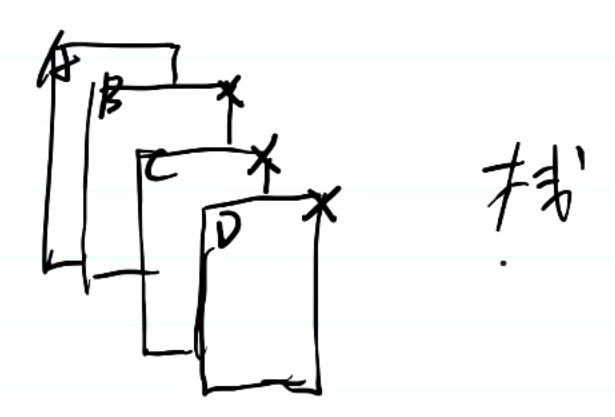 A
B
C
D
栈